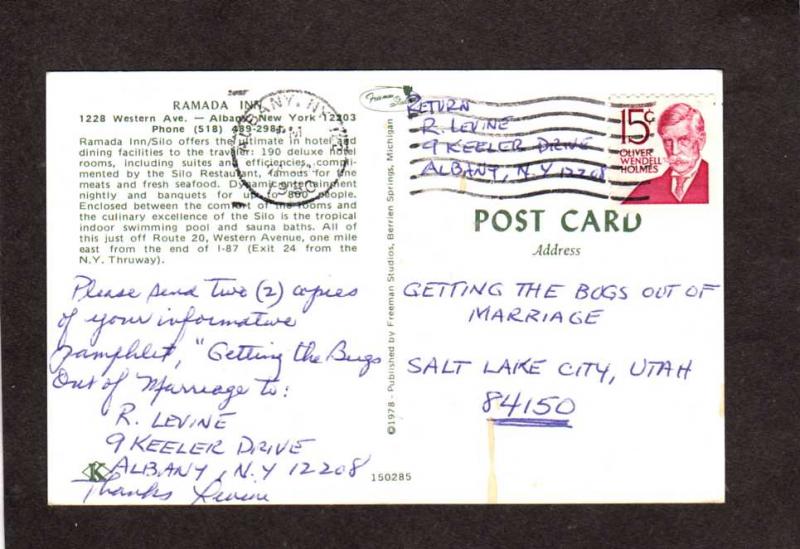 RAMADA INN
1228 Western Ave. — Albany, New York 12203
Phone (518) 489-2981
Ramada Inn/Silo offers the ultimate in hotel and
dining facilities to the traveler. 190 deluxe hotel
rooms, including suites and efficiencies, compli-
mented by the Silo Restaurant, famous for fine
meats and fresh seafood. Dynamic entertainment
nightly and banquets for up to 800 people.
Enclosed between the comfort of the rooms and
the culinary excellence of the Silo is the tropical
indoor swimming pool and sauna baths. All of
this just off Route 20, Western Avenue, one mile
east from the end of I-87 (Exit 24 from the
N.Y. Thruway).
Please send two (2) copies
of your informative
pamphlet, "Getting the Bugs
Out of Marriage to:
R. LEVINE
9 KEELER DRIVE
ALBANY, N.Y 12208
Thanks Levine
K
ALBANY, NY
PM
1980
©1978 - Published by Freeman Studios, Berrien Springs, Michigan
150285
RETURN
R. LEVINE
9 KEELER DRIVE
ALBANY, N.Y 12208
15¢
OLIVER
WENDELL
HOLMES
POST CARD
Address
GETTING THE BUGS OUT OF
MARRIAGE
SALT LAKE CITY, UTAH
84150